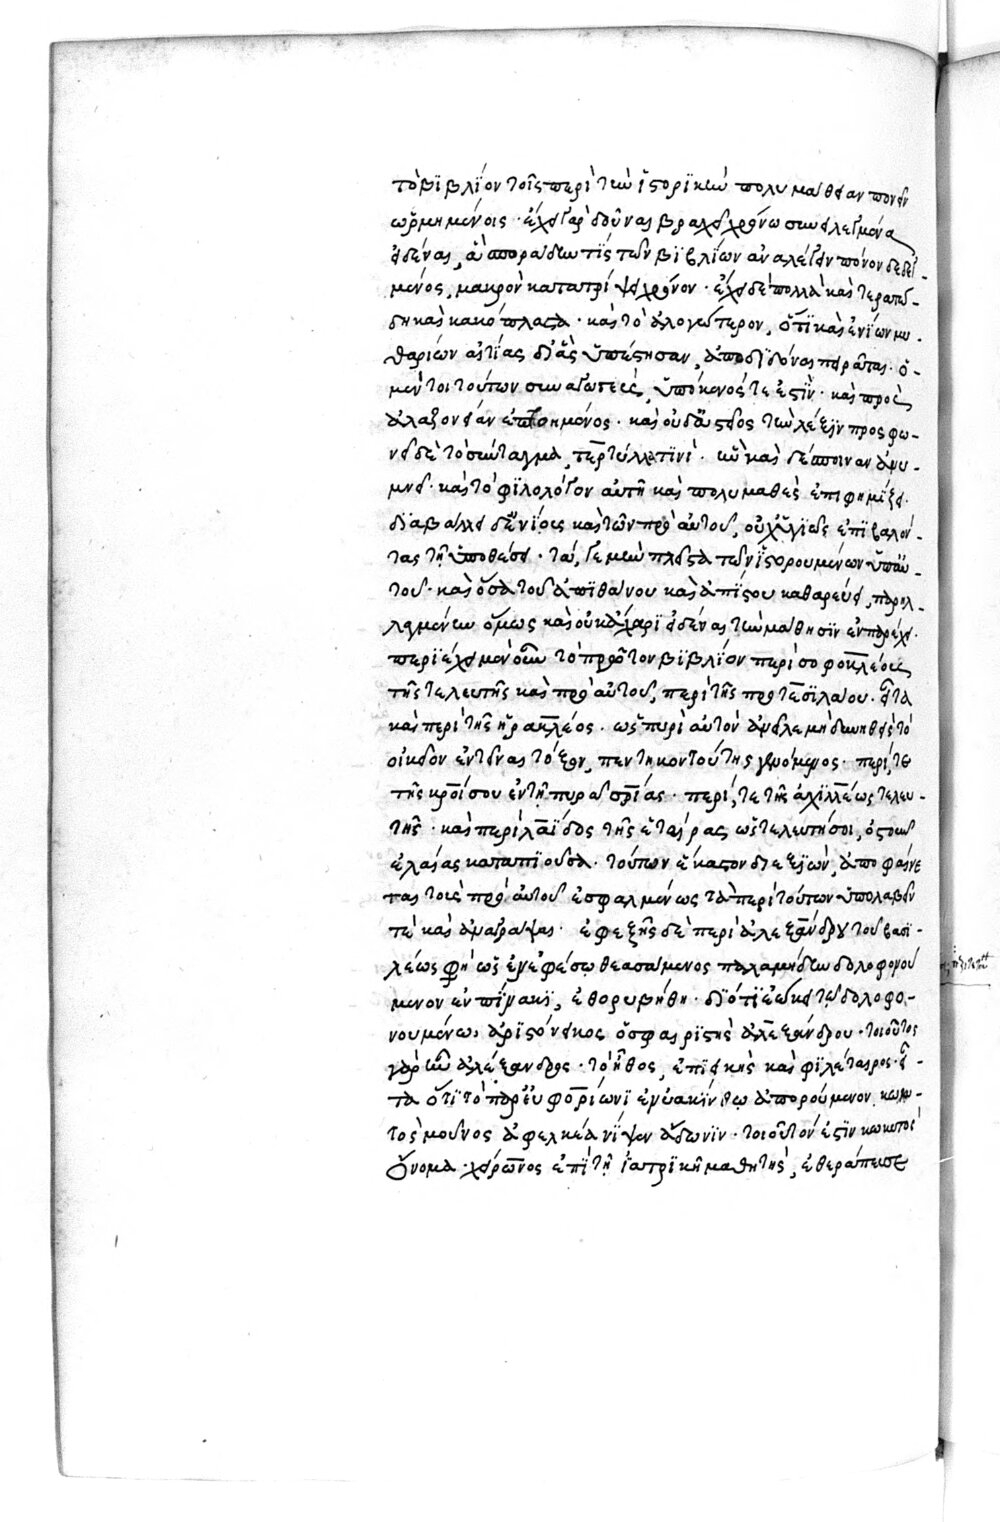 τὸ βϊβλΐον τοῖς περὶ τὴν ἱστορϊκὴν πολυμάθειαν πονεῖν
ὡρμημένοις· ἔχει γὰρ δοῦναι βραχεῖ χρόνω συνειλεγμένα
εἰδέναι, ἃ σποράδην τὶς τῶν βϊβλίων ἀναλέγειν πόνον δεδεγ-
μένος, μακρὸν κατατρίψει χρόνον· ἔχει δὲ πολλὰ καὶ τερατώ-
δη καὶ κακόπλαστα· καὶ τὸ ἀλογώτερον, ὅτϊ καὶ ἐνΐων μυ-
θαρίων αἰτΐας, δι' ἃς ὑπέστησαν, ἀποδϊδόναι πειρᾶται· ὁ
μέντοι τούτων συναγωγεὺς, ὑπόκενός τε ἐστὶν· καὶ πρὸς
ἀλαζονείαν ἐπτοημένος· καὶ οὐδ' ἀστεῖος τὴν λέξϊν· προσφω-
νεῖ δὲ τὸ σύνταγμα, τερτύλλᾳ τϊνὶ· ἣν καὶ δέσποιναν ἀνυ-
μνεῖ· καὶ τὸ φϊλολόγον αὐτῇ καὶ πολυμαθὲς ἐπιφημίζει·
διαβάλλει δ' ἐνΐους καὶ τῶν πρὸ αὐτοῦ, οὐχ ὑγϊῶς ἐπϊβαλόν-
τας τῇ ὑποθέσει· τά γε μὴν πλεῖστα τῶν ἱστορουμένων ὑπ' αὐ-
τοῦ· καὶ ὅσα τοῦ ἀπϊθάνου καὶ ἀπΐστου καθαρεύει, παρηλ-
λαγμένην ὅμως καὶ οὐκ ἄχαρϊ εἰδέναι τὴν μάθησϊν ἐνπαρέχει·
περιέχει μὲν οὖν τὸ πρῶτον βϊβλΐον περὶ σοφοκλέους
τῆς τελευτῆς καὶ πρὸ αὐτοῦ, περὶ τῆς πρωτεσϊλάου· εἶτα
καὶ περὶ τῆς ἡρακλέος· ὡς πυρὶ αὑτὸν ἀνεῖλε μὴ δυνηθεὶς τὸ
οἰκεῖον ἐντεῖναι τόξον, πεντηκοντούτης γενόμενος· περί, τε
τῆς κροίσου ἐν τῇ πυρᾷ σωτηρίας· περί, τε τῆς ἀχιλλέως τελευ-
τῆς· καὶ περὶ λαΐδος τῆς ἑταίρας, ὡς τελευτήσοι, ὀστοῦν
ἐλαίας καταπϊοῦσα· τούτων ἕκαστον διεξϊὼν, ἀποφαίνε
ται τοὺς πρὸ αὐτοῦ ἐσφαλμένως τὰ περὶ τούτων ὑπολαβεῖν
τὲ καὶ ἀναγράψαι· ἐφεξῆς δὲ περὶ ἀλεξάνδρου τοῦ βασι-
λέως φησὶν ὡς ἐν ἐφέσῳ θεασάμενος παλαμήδην δολοφονού
μενον ἐν πίνακϊ, ἐθορυβήθη· διότϊ ἐῴκει τῷ δολοφο-
νουμένω, ἀρϊστόνεικος ὁ σφαιρϊστὴς ἀλεξάνδρου· τοιοῦτος
γὰρ ἦν ἀλέξανδρος· τὸ ἦθος, ἐπϊεικὴς καὶ φϊλέταιρος· εἶ-
τα ὅτϊ τὸ παρ' εὐφορίωνϊ ἐν ὑακίνθῳ ἀπορούμενον, κωκυ-
τὸς μοῦνος ἀφ' ἕλκεα νΐψεν ἄδωνϊν· τοιοῦτόν ἐστϊν κωκυτὸς
ὄνομα· χείρωνος ἐπϊ τῇ ἰατρϊκῇ μαθητὴς, ἐθεράπευσε